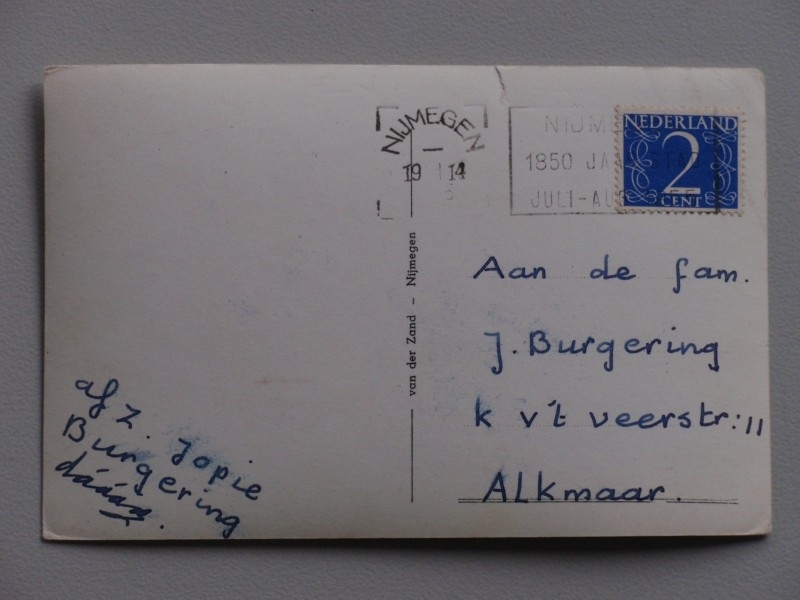 NIJMEGEN
19 14
1850 JA
JULI-AUG
NEDERLAND
2
CENT
van der Zand – Nijmegen
Aan de fam.
J. Burgering
k v't veerstr: 11
ALkmaar.
afz. Jopie
Burgering
dáááág.